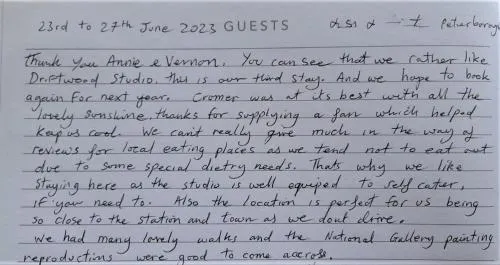 23rd to 27th June 2023 GUESTS Peterborough
Thank you Annie & Vernon. You can see that we rather like
Driftwood Studio, this is our third stay. And we hope to book
again for next year. Cromer was at its best with all the
lovely sunshine, thanks for supplying a fan which helped
keep us cool. We can't really give much in the way of
reviews for local eating places as we tend not to eat out
due to some special dietry needs. Thats why we like
staying here as the studio is well equiped to self cater,
if you need to. Also the location is perfect for us being
so close to the station and town as we dont drive.
We had many lovely walks and the National Gallery painting
reproductions were good to come accross.